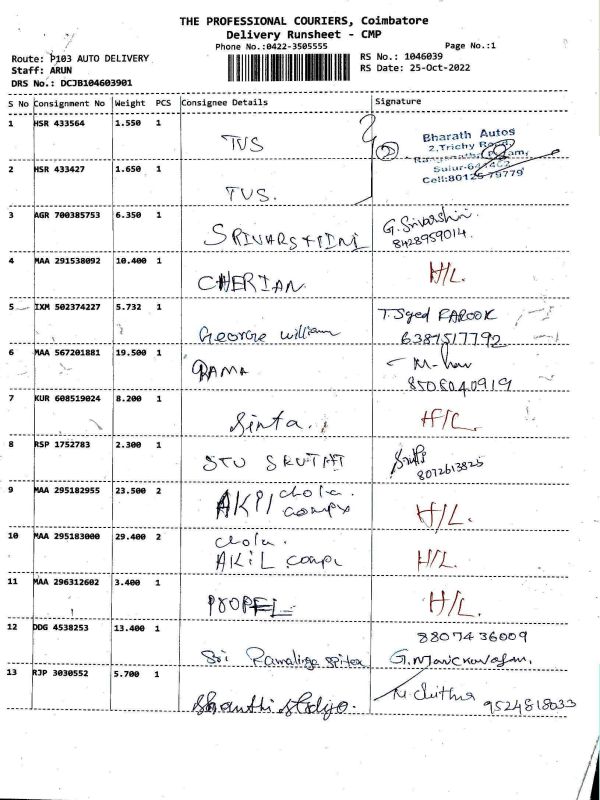 THE PROFESSIONAL COURIERS, Coimbatore
Delivery Runsheet - CMP
Phone No.:0422-3505555 Page No.:1
Route: P103 AUTO DELIVERY RS No.: 1046039
Staff: ARUN RS Date: 25-Oct-2022
DRS No.: DCJB104603901
S No Consignment No Weight PCS Consignee Details Signature
1 HSR 433564 1.550 1
TVS
Bharath Autos
2,Trichy Road,
Sulur-641402
Cell:80125 79779
2 HSR 433427 1.650 1
TVS.
3 AGR 700385753 6.350 1
SRIVARSHINI G. Srivarshini
8428959014
4 MAA 291538092 10.400 1
CHERIAN H/L.
5 IXM 502374227 5.732 1
George William T. Syed FAROOK
6387517792
6 MAA 567201881 19.500 1
RAMA
8508040919
7 KUR 608519024 8.200 1
Sinta. H/L.
8 RSP 1752783 2.300 1
SRUTHI
8072613825
9 MAA 295182955 23.500 2
chola.
H/L.
10 MAA 295183000 29.400 2
chola.
AKIL H/L.
11 MAA 296312602 3.400 1
PROPEL H/L.
12 DDG 4538253 13.400 1
8807436009
Sri Ramalinga G. Manickavasam.
13 RJP 3030552 5.700 1
Shanthi M. Chithra
9524818033